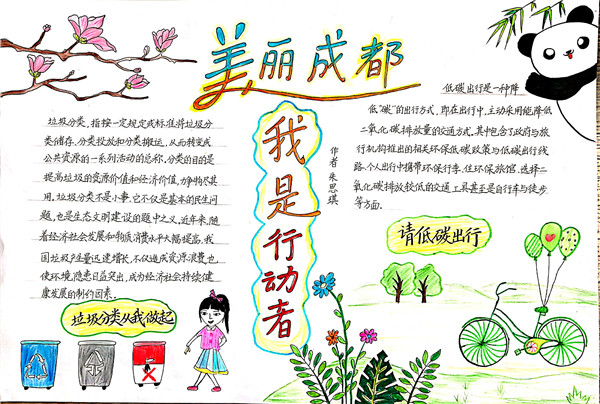 美丽成都
我是行动者
作者 朱思琪
垃圾分类,指按一定规定或标准将垃圾分
类储存、分类投放和分类搬运,从而转变成
公共资源的一系列活动的总称。分类的目的是
提高垃圾的资源价值和经济价值,力争物尽其
用。垃圾分类不是小事,它不仅是基本的民生问
题,也是生态文明建设的题中之义。近年来,随
着经济社会发展和物质消费水平大幅提高,我
国垃圾产生量迅速增长,不仅造成资源浪费,也
使环境隐患日益突出,成为经济社会持续健
康发展的制约因素。
垃圾分类从我做起
低碳出行是一种降
低“碳”的出行方式,即在出行中,主动采用能降低
二氧化碳排放量的交通方式。其中包含了政府与旅
行机构推出的相关环保低碳政策与低碳出行线
路、个人出行中携带环保行李、住环保旅馆、选择二
氧化碳排放较低的交通工具甚至是自行车与徒步
等方面。
请低碳出行